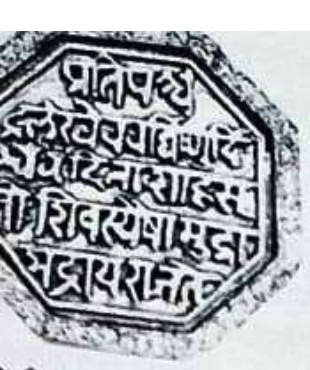 प्रतिपच्चं
द्रलेखेववर्धिष्णुर्वि
श्ववंदिता शाहसू
नोः शिवस्यैषा मुद्रा
भद्राय राजते